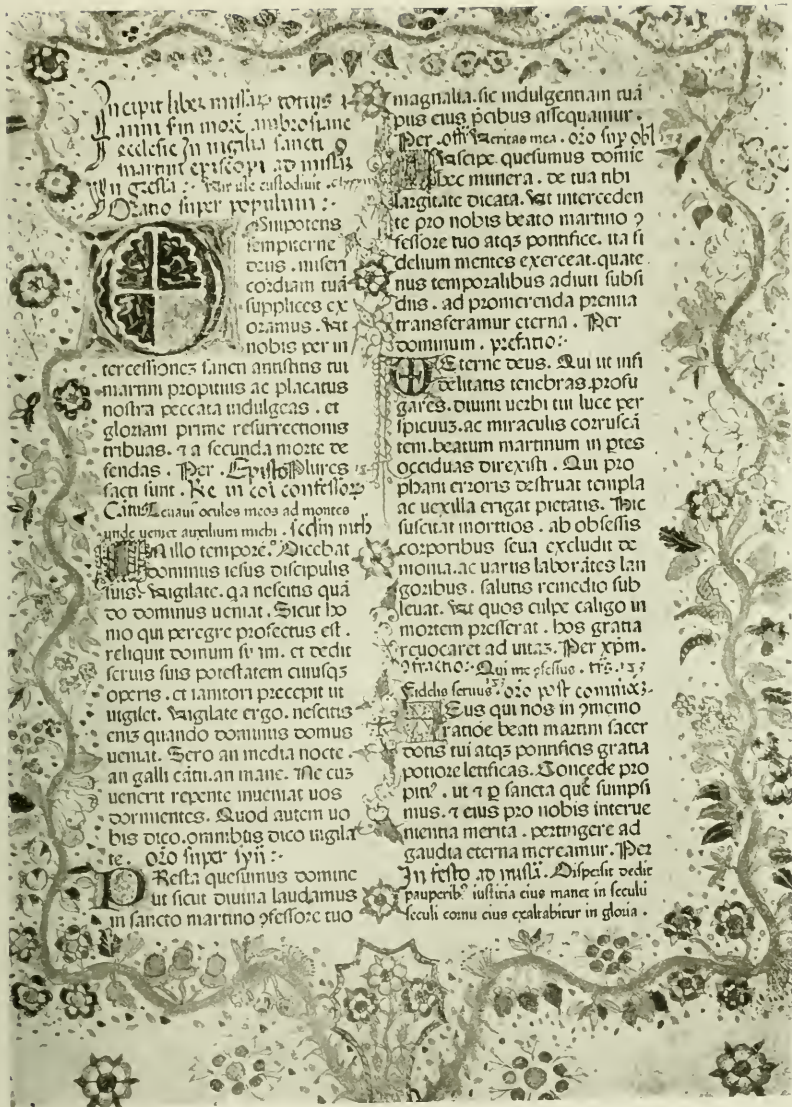 Incipit liber missaꝝ totius
anni ẜm morē ambrosiane
ecclesie In vigilia sancti
martini episcopi ad missā
In gressa : Vir iste custodiuit
Oratio super populum :
Omnipotens
sempiterne
deus . miseri
cordiam tuā
supplices ex
oramus . Vt
nobis per in
tercessionez sancti antistitis tui
martini propitius ac placatus
nostra peccata indulgeas . et
gloriam prime resurrectionis
tribuas . ⁊ a secunda morte de
fendas . Per . Episto Plures
facti sunt . Re in coī confessoꝝ
Cātus Leuaui oculos meos ad montes
unde ueniet auxilium michi . secūm mth
In illo tempore . Dicebat
dominus iesus discipulis
suis . Vigilate . qa nescitis quā
do dominus ueniat . Sicut ho
mo qui peregre profectus est .
reliquit domum suam . et dedit
seruis suis potestatem cuiusqȝ
operis . et ianitori precepit ut
uigilet . Vigilate ergo . nescitis
eniȝ quando dominus domus
ueniat . Sero an media nocte .
an galli cātu . an mane . Ne cuȝ
uenerit repente inueniat uos
dormientes . Quod autem uo
bis dico . omnibus dico uigila
te . Orō super syn̄ :
PResta quesumus domine
ut sicut diuina laudamus
in sancto martino ꝯfessore tuo
magnalia . sic indulgentiam tuā
piis eius p̄cibus assequamur .
Per . off̄ Veritas mea . orō suꝑ obl
Suscipe quesumus domine
hec munera . de tua tibi
largitate dicata . Vt interceden
te pro nobis beato martino ꝯ
fessore tuo atqȝ pontifice . ita fi
delium mentes exerceat . quate
nus temporalibus adiuti subsi
diis . ad promerenda premia
transferamur eterna . Per
dominum . prefatio :
Eterne deus . Qui ut infi
delitatis tenebras profu
gares . diuini uerbi tui luce per
spicuuȝ . ac miraculis corruscā
tem . beatum martinum in ꝑtes
occiduas direxisti . Qui pro
phani erroris destruat templa
ac uexilla erigat pietatis . Hic
suscitat mortuos . ab obsessis
corporibus seua excludit de
monia . ac uariis laborātes lan
goribus . salutis remedio sub
leuat . Vt quos culpe caligo in
mortem presserat . hos gratia
reuocaret ad uitaȝ . Per xp̄m .
ꝯfractio : Qui me ꝯfessus .
Fidelis seruus . orō post commix
DEus qui nos in ꝯmemo
ratiōe beati martini sacer
dotis tui atqȝ pontificis gratia
potiore letificas . Concede pro
piti⁹ . ut ⁊ ꝑ sancta que sumpsi
mus . ⁊ eius pro nobis interue
nientia merita . pertingere ad
gaudia eterna mereamur . Per
In festo ad missā . Dispersit dedit
pauperib⁹ iustitia eius manet in seculū
seculi cornu eius exaltabitur in gloria .